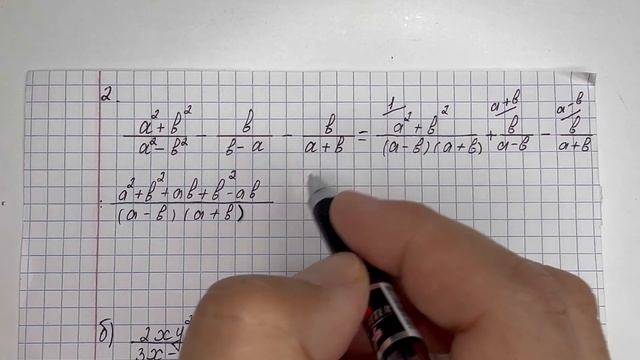 2.
(a² + b²)/(a² - b²) - b/(b - a) - b/(a + b) = 1 (a² + b²)/((a - b)(a + b)) + a+b b/(a - b) - a-b b/(a + b)
(a² + b² + ab + b² - ab)/((a - b)(a + b))
б) 2xy
3x -